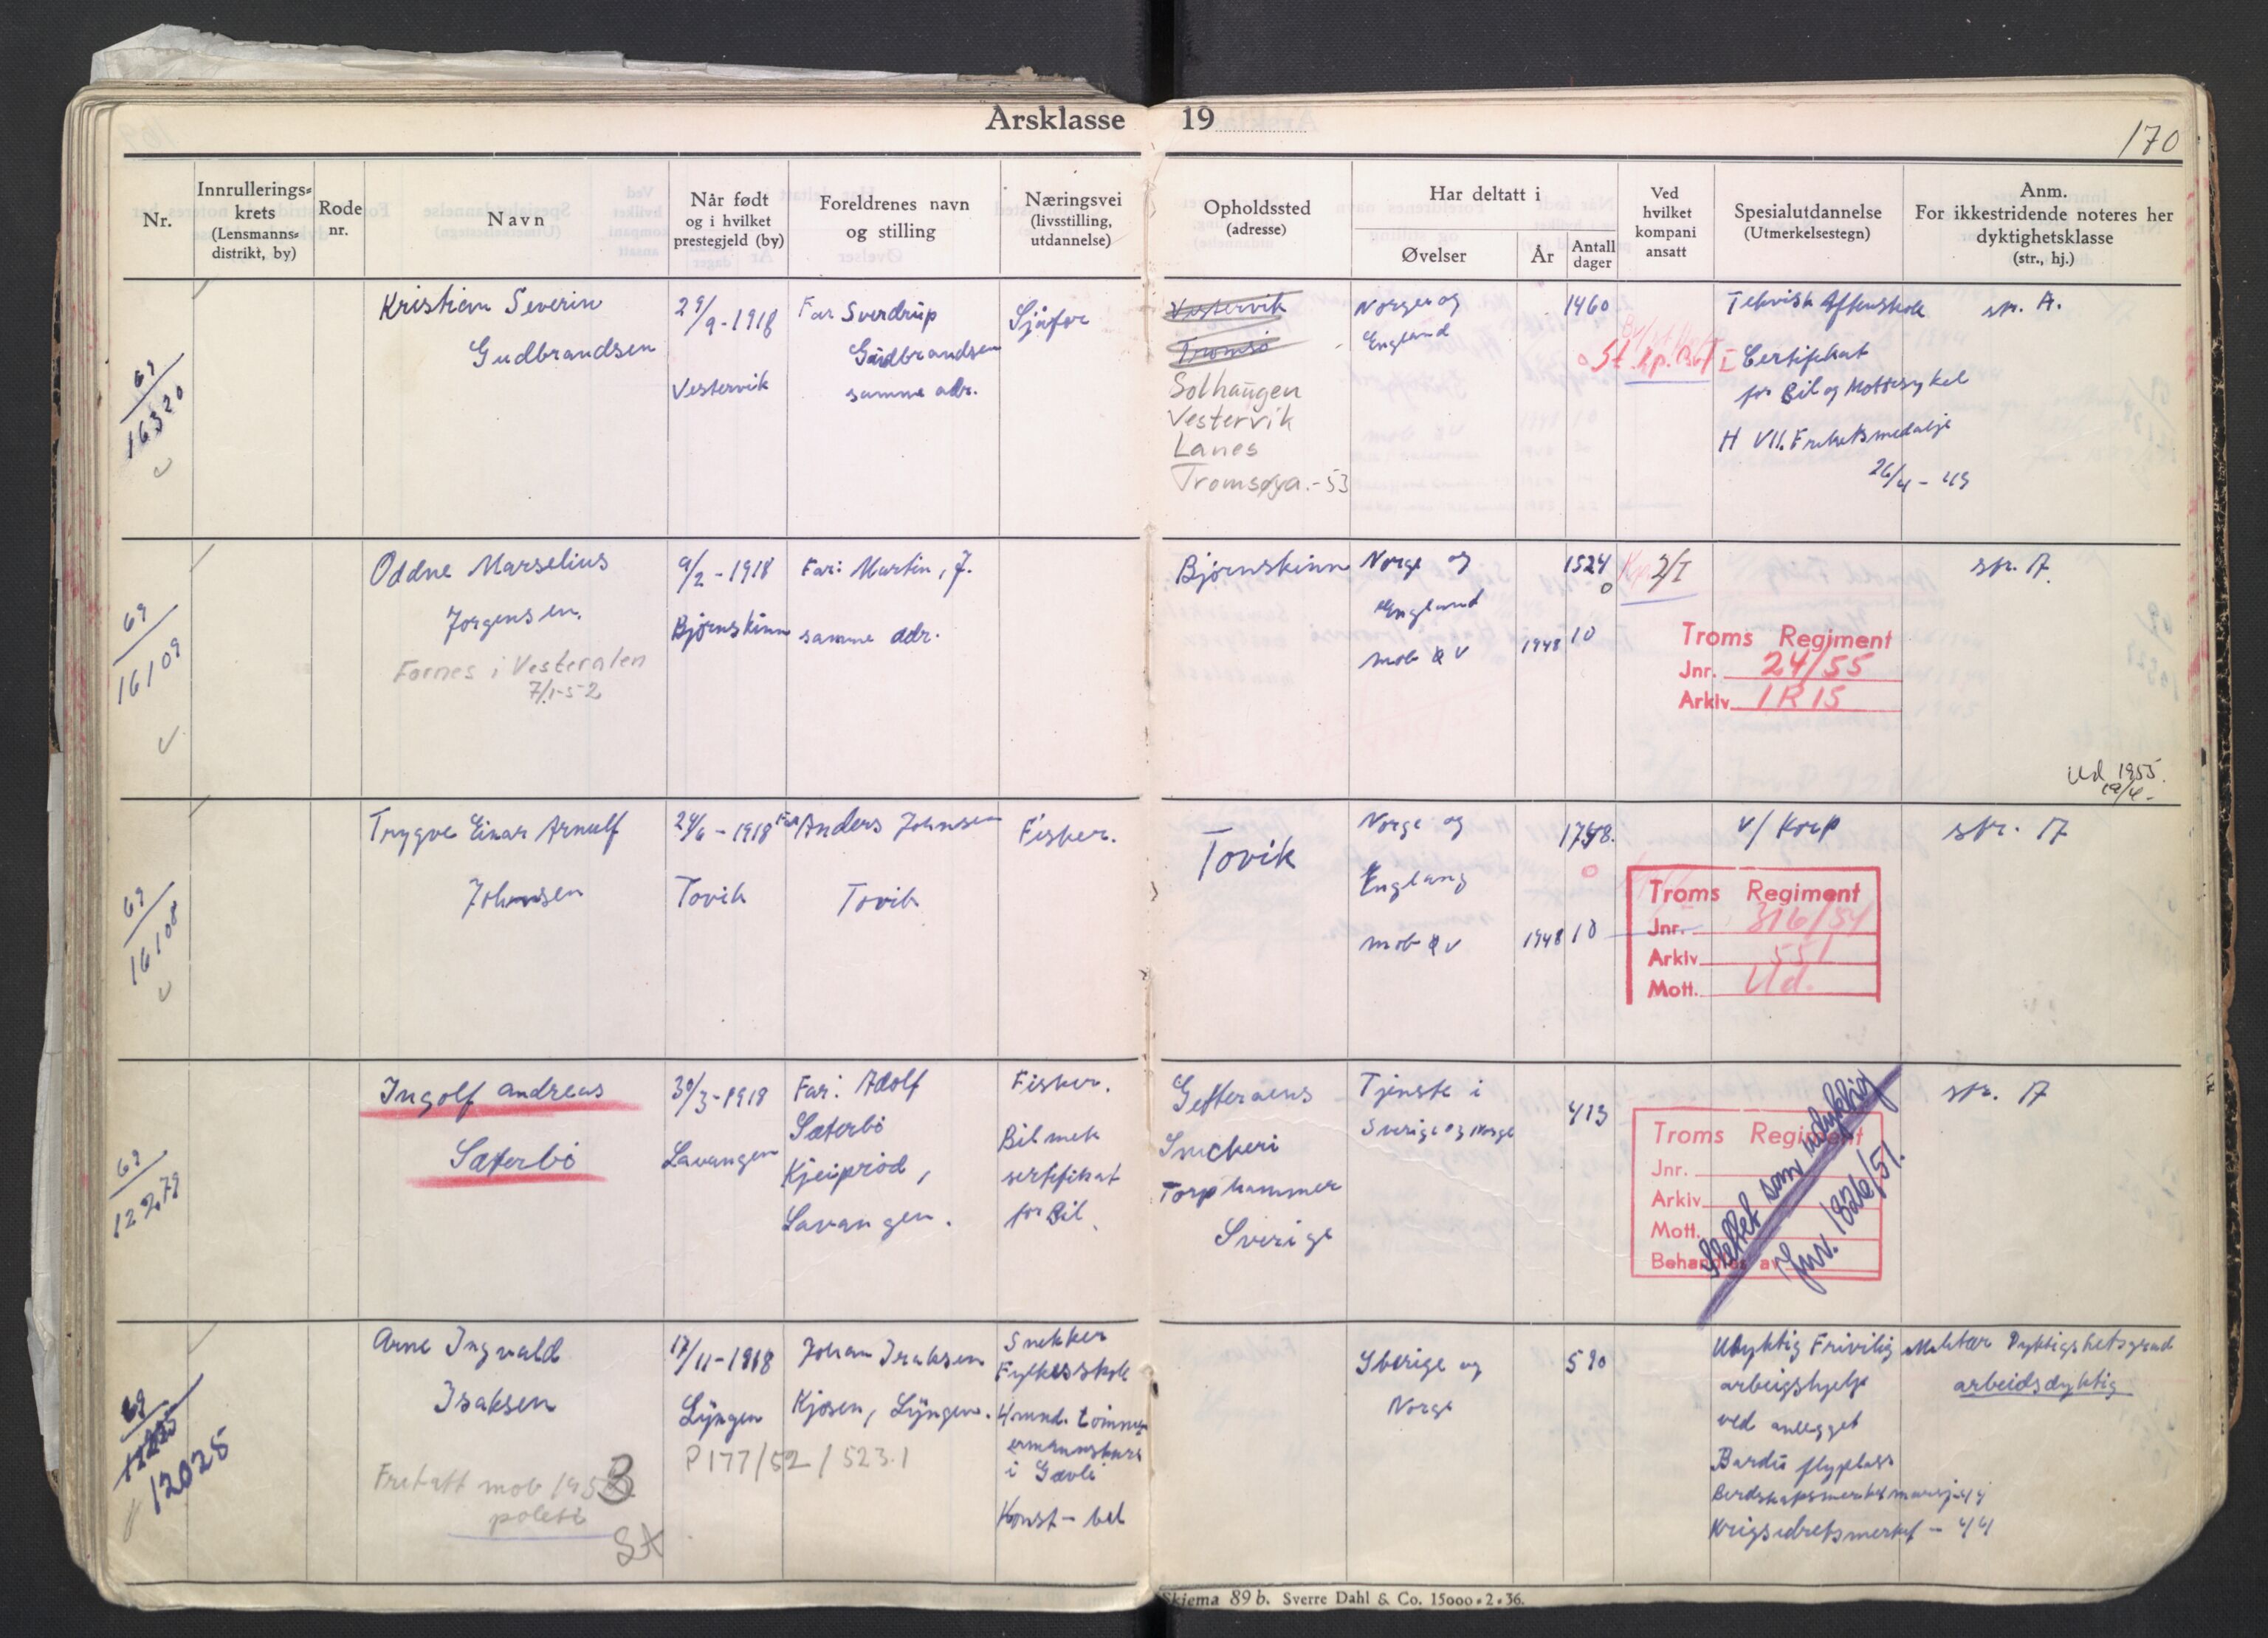 Årsklasse 19
170
Nr.
Innrullerings-
krets
(Lensmanns-
distrikt, by)
Rode
nr.
Navn
Når født
og i hvilket
prestegjeld (by)
Foreldrenes navn
og stilling
Næringsvei
(livsstilling,
utdannelse)
Opholdssted
(adresse)
Har deltatt i
Øvelser
År
Antall
dager
Ved
hvilket
kompani
ansatt
Spesialutdannelse
(Utmerkelsestegn)
Anm.
For ikkestridende noteres her
dyktighetsklasse
(str., hj.)
69
16320
Kristian Severin
Gudbrandsen
29/9-1918
Vestervik
Far Sverdrup
Gudbrandsen
samme adr.
Sjåfør
Vestervik
Tromsø
Solhaugen
Vestervik
Lanes
Tromsøya.-53
Norge og
England
1460
St.kp.
Teknisk Aftenskole
Certifikat
for Bil og Mottosykel
H VII. Frihetsmedalje
26/4-49
str. A.
69
16109
Oddne Marselius
Jørgensen.
Fornes i Vesterålen
7/1-52
9/2-1918
Bjørnskinn
Far: Martin, J.
samme adr.
Bjørnskinn
Norge og
England
mob ØV
1948
1524
10
2/I
Troms Regiment
Jnr. 24/55
Arkiv IR15
str. A.
Ud 1955.
69
16108
Trygve Einar Arnulf
Johnsen
24/6-1918
Tovik
Far Anders Johnsen
Tovik
Fisker.
Tovik
Norge og
Englang
mob ØV
1948
1748.
10
v/ Korp
Troms Regiment
Jnr. 316/54
Arkiv 551
Mott. Ud.
str. A
69
12279
Ingolf Andreas
Sæterbö
30/3-1918
Lavangen
Far: Adolf
Sæterbö
Kjeiprød,
Lavangen.
Fisker.
Bil mek
sertifikat
for Bil.
Snickeri
Torphammer
Sverige
Tjenste i
Sverige og Norge
413
Troms Regiment
Jnr.
Arkiv
Mott.
Behandles av
Slettet som udyktig
Jnr. 1826/51.
str. A
69
12025
Arne Ingvald
Isaksen
Fritatt mob 195
politi
B
St
17/11-1918
Lyngen
P177/52/523.1
Johan Isaksen
Kjosen, Lyngen.
Snekker
Fylkesskole
4 mnd. tømmer
ermannskurs
i Gävle
Konst-bel
Sverige og
Norge
590
Udyktig Frivilig
arbeigshjelp
ved anlegget
Bardu flyplass
Krigsidretsmerket - 44
Militær Dyktighetsgrad
arbeidsdyktig
Skjema 89 b. Sverre Dahl & Co. 15000-2-36.